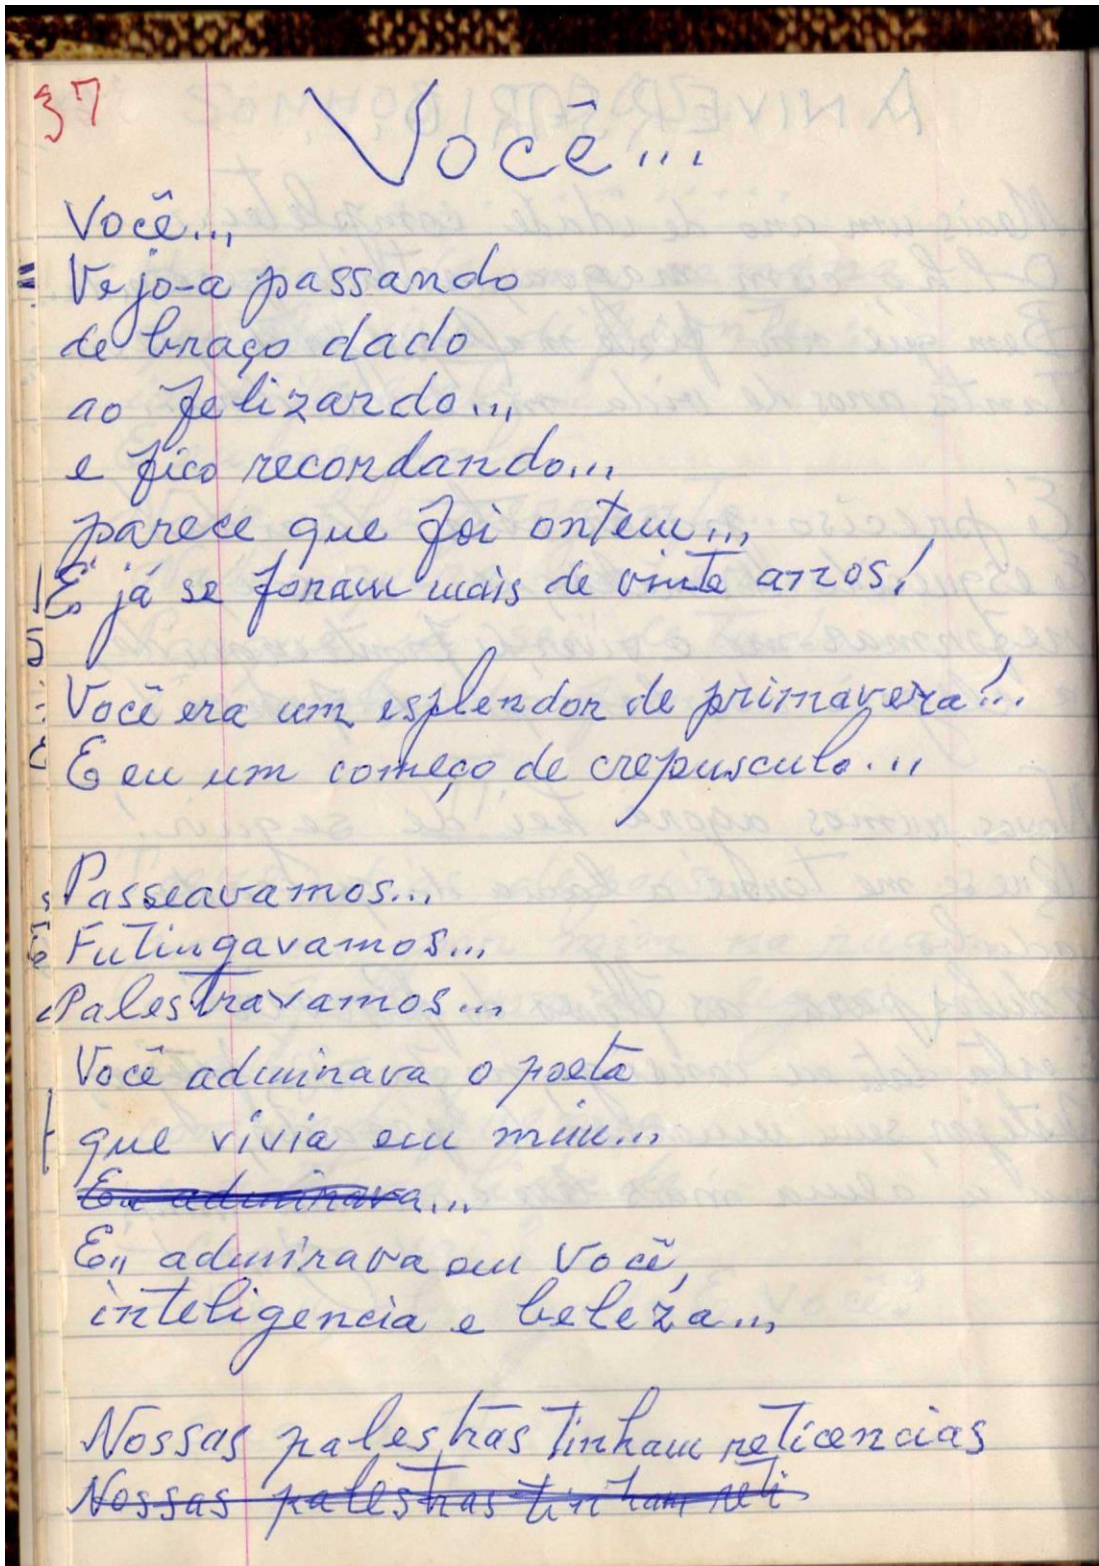 37
Você...
Você...
Vejo-a passando
de braço dado
ao felizardo...
e fico recordando...
parece que foi ontem...
E já se foram mais de vinte anos!
Você era um esplendor de primavera!...
E eu um começo de crepusculo...
Passeavamos...
Futingavamos...
Palestravamos...
Você admirava o poeta
que vivia em mim...
Eu admirava...
Eu admirava em Você,
inteligencia e beleza...
Nossas palestras tinham reticencias
Nossas palestras tinham reti